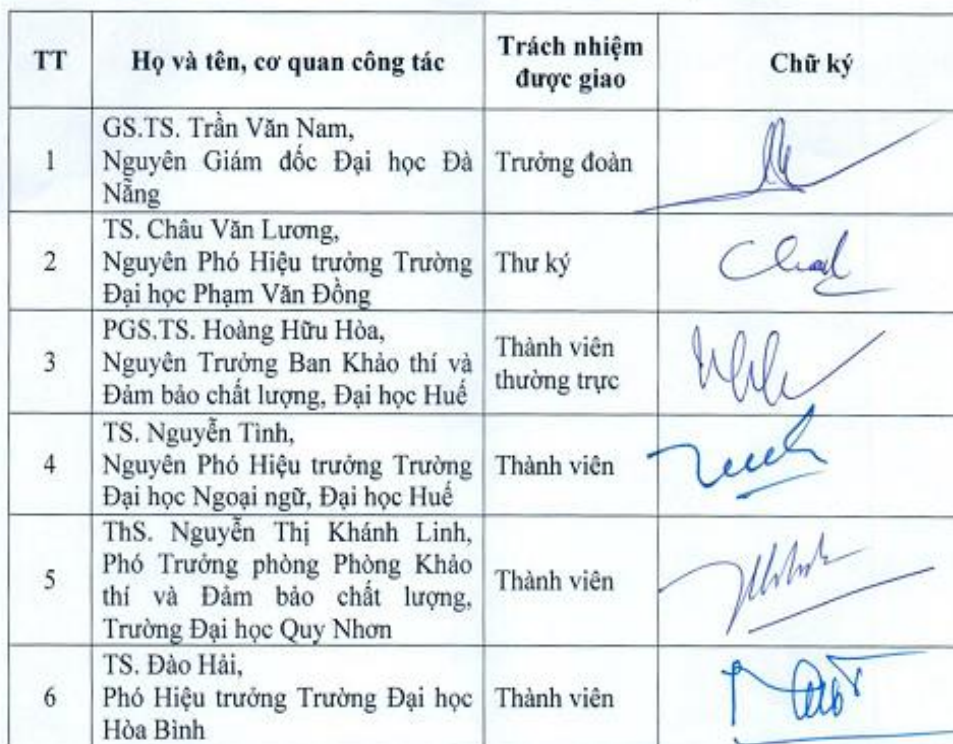 TT
Họ và tên, cơ quan công tác
Trách nhiệm
được giao
Chữ ký
1
GS.TS. Trần Văn Nam,
Nguyên Giám đốc Đại học Đà
Nẵng
Trưởng đoàn
2
TS. Châu Văn Lương,
Nguyên Phó Hiệu trưởng Trường
Đại học Phạm Văn Đồng
Thư ký
3
PGS.TS. Hoàng Hữu Hòa,
Nguyên Trưởng Ban Khảo thí và
Đảm bảo chất lượng, Đại học Huế
Thành viên
thường trực
4
TS. Nguyễn Tình,
Nguyên Phó Hiệu trưởng Trường
Đại học Ngoại ngữ, Đại học Huế
Thành viên
5
ThS. Nguyễn Thị Khánh Linh,
Phó Trưởng phòng Phòng Khảo
thí và Đảm bảo chất lượng,
Trường Đại học Quy Nhơn
Thành viên
6
TS. Đào Hải,
Phó Hiệu trưởng Trường Đại học
Hòa Bình
Thành viên